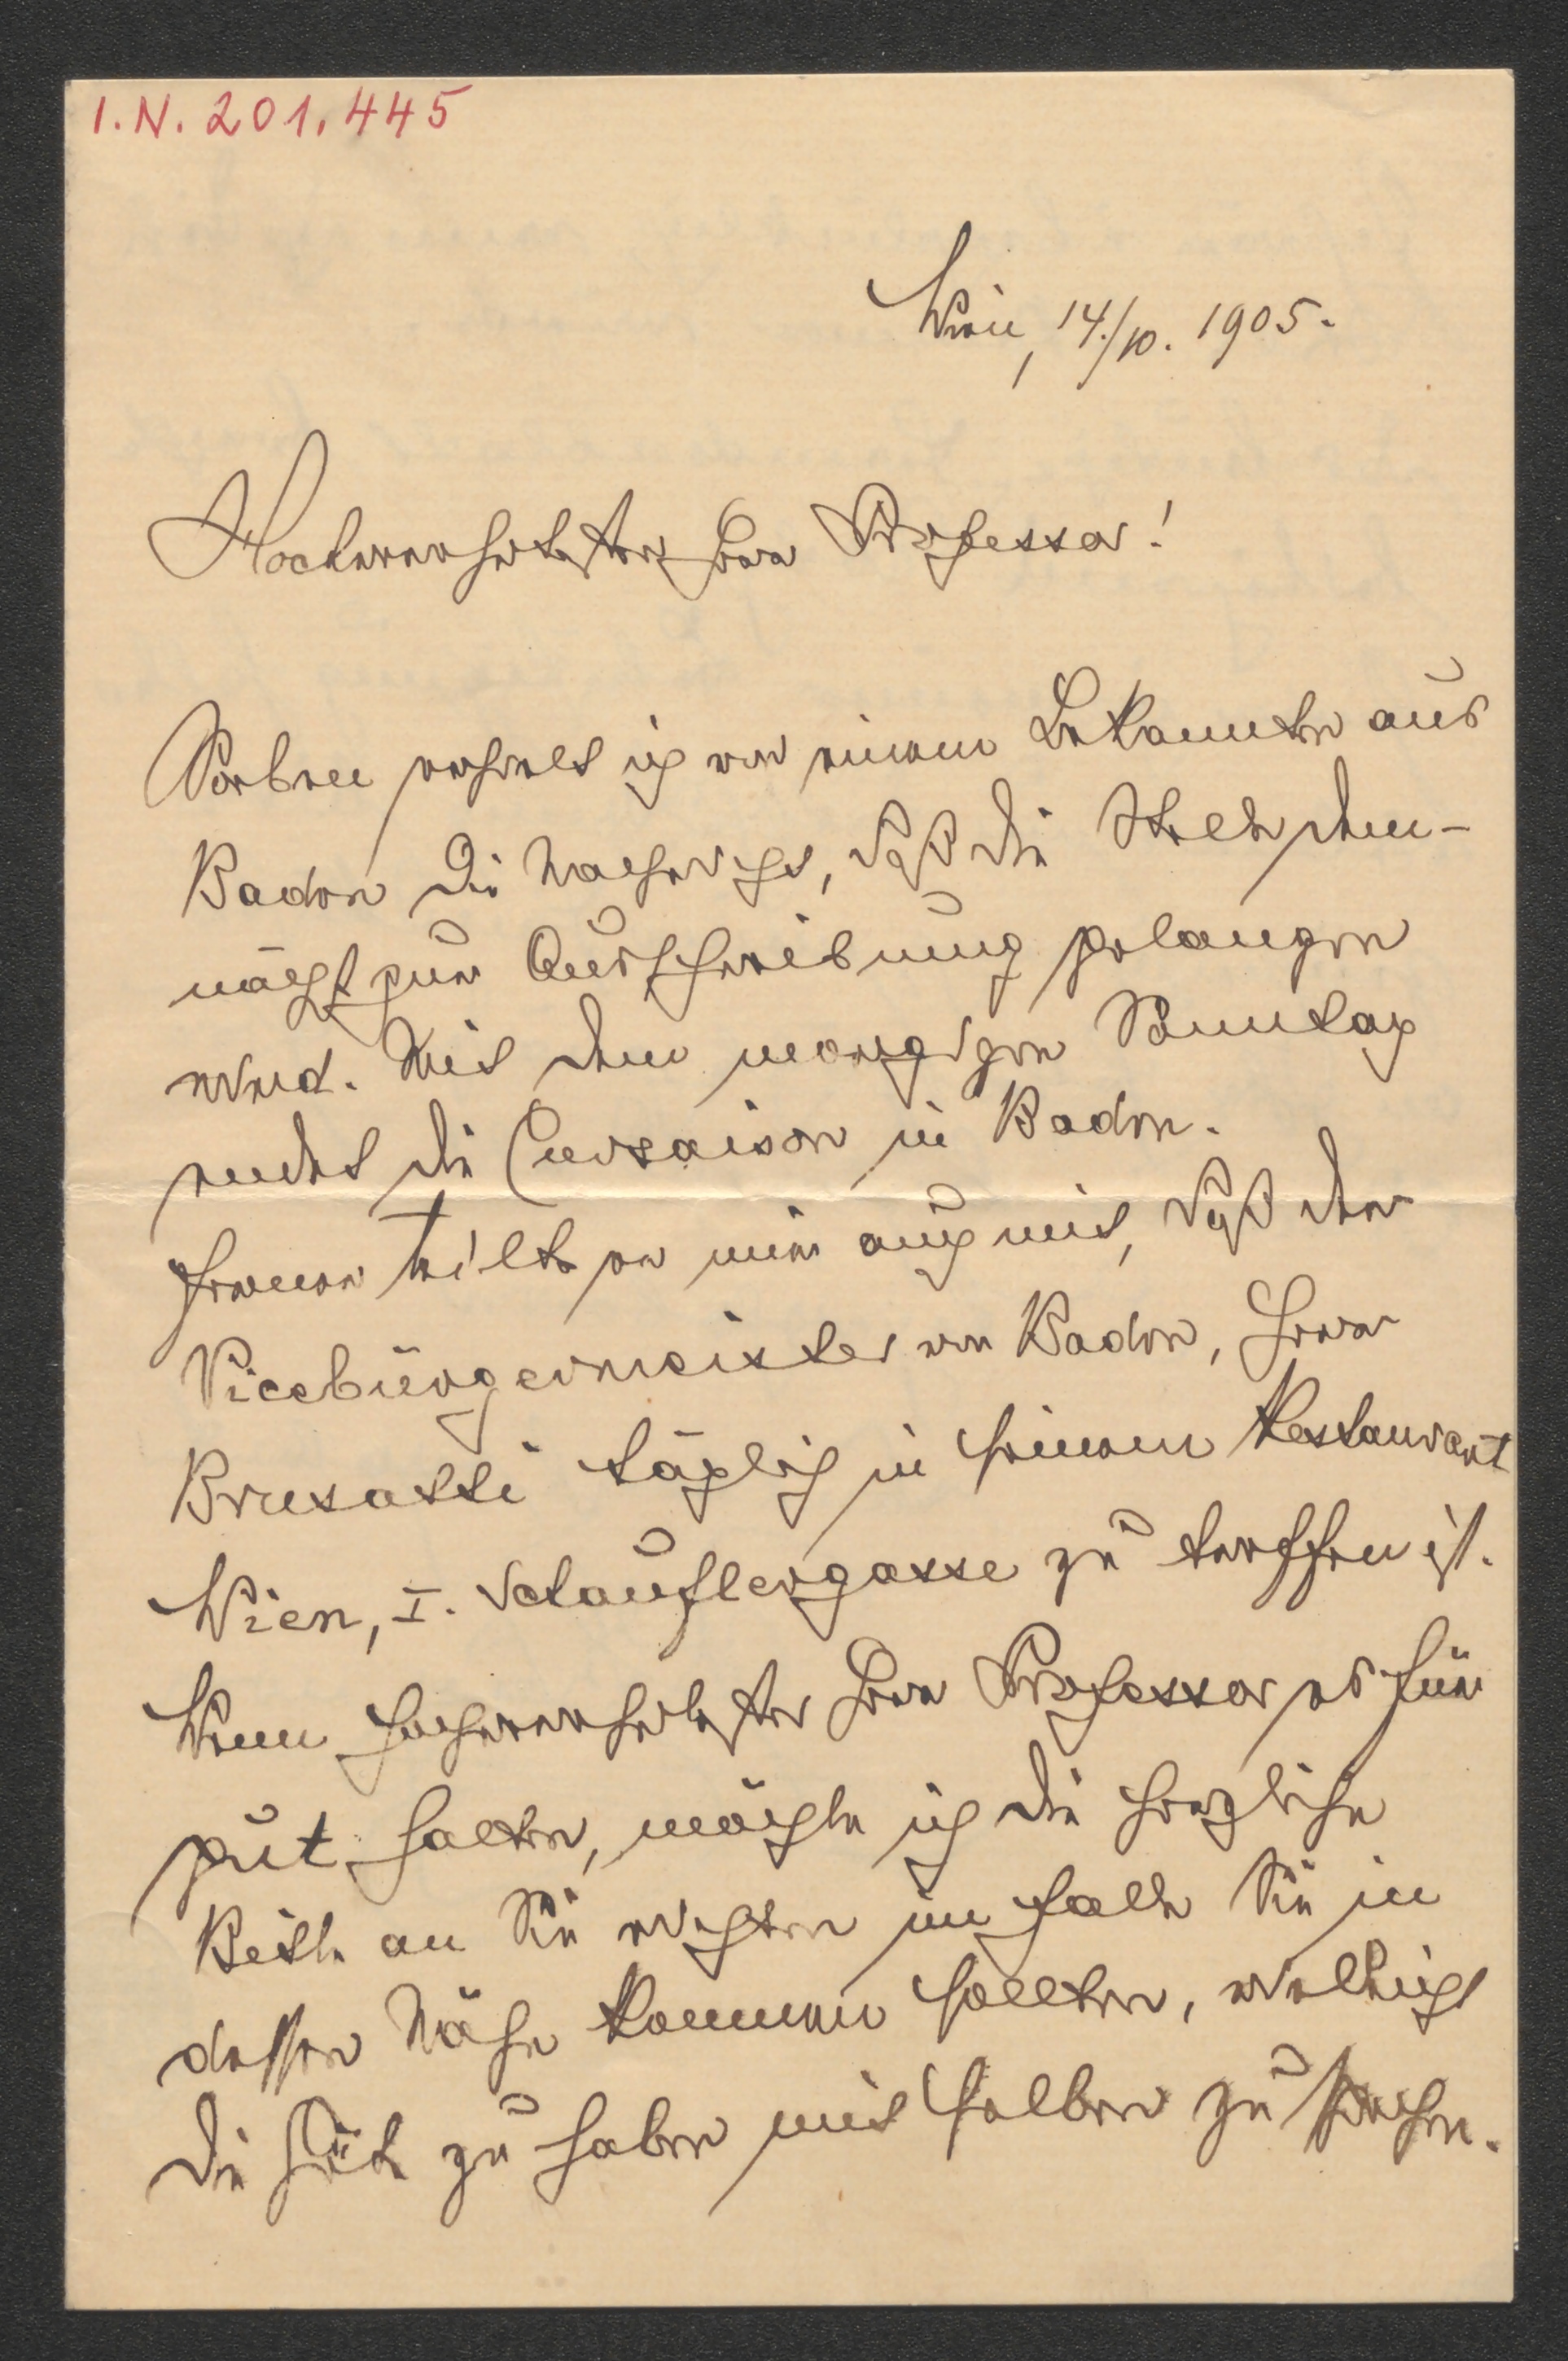 I. N. 201.445
Wien, 14./10. 1905.
Hochverehrtester Herr Professor!
Soeben erhielt ich von einem Bekannten aus
Baden die Nachricht, daß die Stelle dem-
nächst zur Ausschreibung gelangen
wird. Mit dem morgigen Sonntag
endet die Cursaison in Baden.
Ferner teilte er mir auch mit, daß der
Vicebürgermeister von Baden, Herr
Brusatti täglich in seinem Restaurant
Wien, I. Schauflergasse zu treffen ist.
Wenn hochverehrtester Herr Professor es für
gut halten, möchte ich die herzliche
Bitte an Sie richten im Falle Sie in
dessen Nähe kommen sollten, vielleicht
die Güte zu haben mit selben zu sprechen.